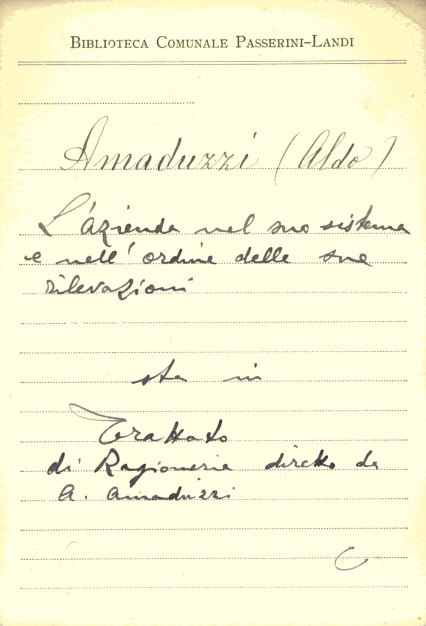 BIBLIOTECA COMUNALE PASSERINI-LANDI
Amaduzzi (Aldo)
L'azienda nel suo sistema
e nell'ordine delle sue
rilevazioni
sta in
Trattato
di Ragioneria diretto da
A. Amaduzzi
C